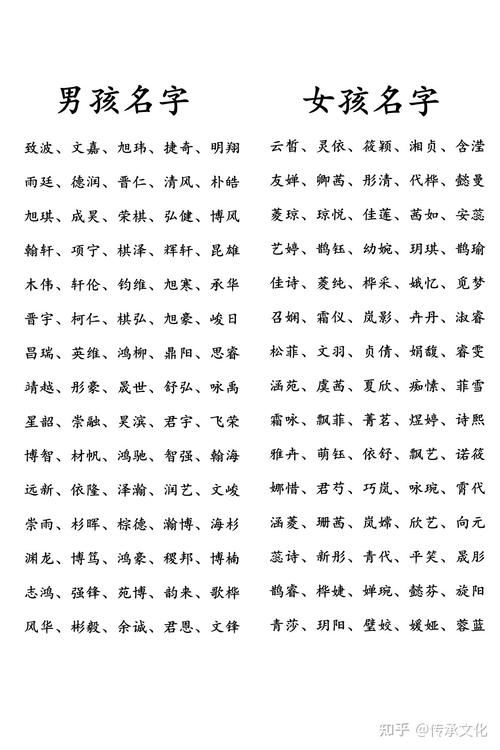 男孩名字
致波、文嘉、旭玮、捷奇、明翔
雨廷、德润、晋仁、清风、朴皓
旭琪、成昊、荣棋、弘健、博风
翰轩、项宁、棋泽、辉轩、昆雄
木伟、轩伦、钧维、旭寒、承华
晋宇、柯仁、棋弘、旭豪、峻日
昌瑞、英维、鸿柳、鼎阳、思睿
靖越、彤豪、晟世、舒弘、咏禹
星韶、崇融、昊滨、君宇、飞荣
博智、材帆、鸿驰、智强、翰海
远新、依隆、泽瀚、润艺、文峻
崇雨、杉晖、棕德、瀚博、海杉
渊龙、博笃、鸿豪、稷邦、博楠
志鸿、强锋、苑博、韵来、歌桦
风华、彬毅、余诚、君恩、文锋
女孩名字
云皙、灵依、筱颖、湘贞、含滢
友婵、卿茜、彤清、代桦、懿曼
菱琼、琼悦、佳莲、茜如、安蕊
艺婷、鹊钰、幼婉、玥琪、鹊瑜
佳诗、菱纯、桦采、娥忆、觅梦
召娴、霜仪、岚影、卉丹、淑睿
松菲、文羽、贞倩、娟馥、睿雯
涵苑、虞茜、夏欣、痴愫、菲雪
霜咏、飘菲、菁茗、煜婷、诗熙
雅卉、萌钰、依舒、飘艺、诺筱
娜惜、君芍、巧岚、咏琬、霄代
涵菱、珊茜、岚嫦、欣艺、向元
蕊诗、新彤、青代、平笑、晟彤
鹊睿、桦婕、婵琬、懿芬、旋阳
青莎、玥阳、璧姣、媛娅、蓉蓝
知乎 @传承文化